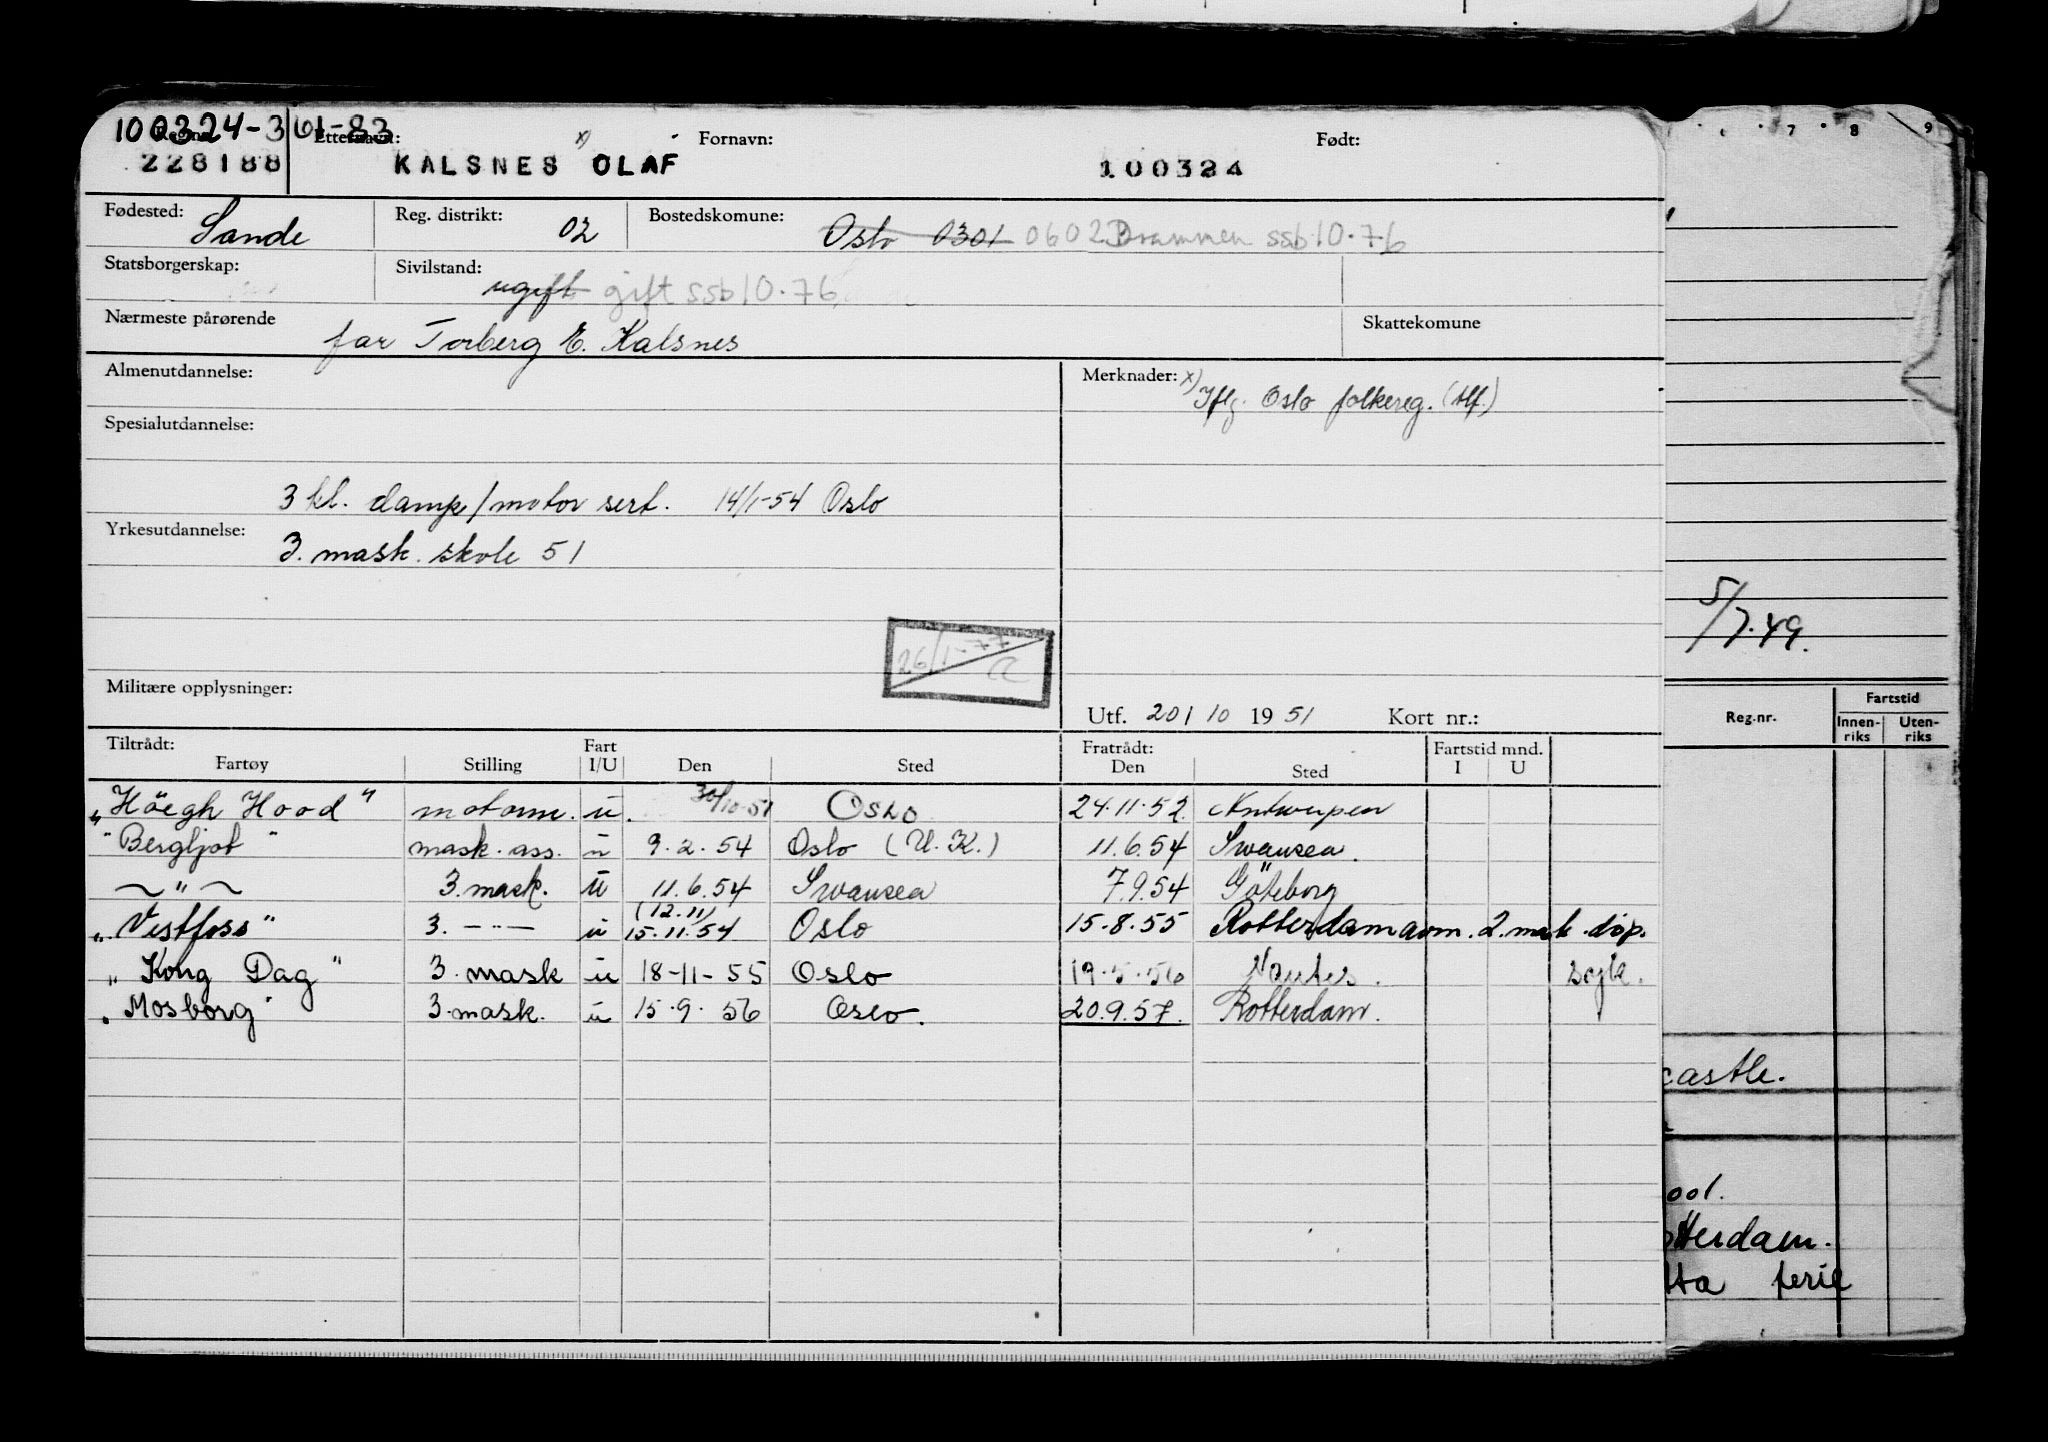 100324-361-83
Etternavn: x) Fornavn: Født:
228188 KALSNES OLAF 100324
Fødested: Sande Reg. distrikt: 02 Bostedskomune: Oslo 0301 0602 Drammen ssb 10.76
Statsborgerskap: Sivilstand: ugift gift ssb 10.76
Nærmeste pårørende far Torberg E. Kalsnes Skattekomune
Almenutdannelse: Merknader: x) Iflg. Oslo folkereg. (Alf.)
Spesialutdannelse:
3 kl. damp/motor sert. 14/1-54 Oslo
Yrkesutdannelse: 3. mask. skole 51
5/7.49.
26/1-77
Militære opplysninger: Utf. 20/10 1951 Kort nr.:
Reg.nr. Fartstid
Innen-riks Uten-riks
Tiltrådt: Fart Fratrådt: Fartstid mnd.
Fartøy Stilling I/U Den Sted Den Sted I U
"Höegh Hood" motorm. u. 30/10-51 Oslo 24.11.52 Antwerpen
"Bergljot" mask. ass. u 9.2.54 Oslo (U.K.) 11.6.54 Swansea.
~"~ 3. mask. u 11.6.54 Swansea 7.9.54 Göteborg
(12.11)
"Vestfoss" 3. -"- u 15.11.54 Oslo 15.8.55 Rotterdam avm. 2. mask. disp.
"Kong Dag" 3. mask u 18-11-55 Oslo 19.5.56 Nantes. syk.
"Mosborg" 3. mask. u 15.9.56 Oslo. 20.9.57. Rotterdam.
castle.
ool.
otterdam.
tta ferie